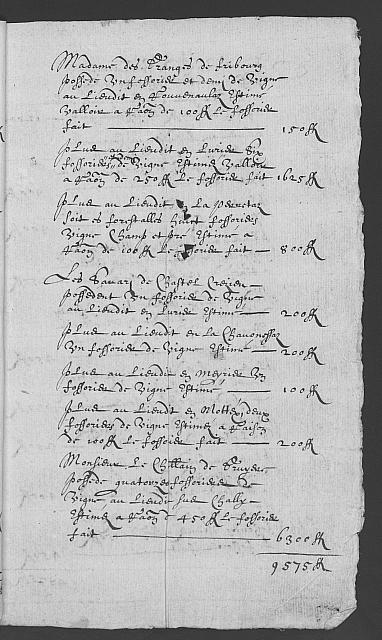 Madame des Pranges de fribourg
possede un fossorier et demi de vigne
au Lieudit en Ferrenaulaz Estime
Valloir a Raon de 100 ff Le fossorier
fait 150 ff
Plus au Lieudit en Luride six
fossoriers de vigne Estimé Valloir
a Raon de 250 ff Le fossorier fait 1625 ff
Plus au Lieudit en La
soit es forestalles huict fossoriers
Vigne Champ et pré Estime a
Raon de 100 ff Le fossorier fait 800 ff
Les Savari de Chastel Cresien
possedent un fossorier de vigne
au Lieudit en Luride Estime 200 ff
Plus au Lieudit en la Chavonettaz
Un fossorier de vigne Estimé 200 ff
Plus au Lieudit en Meyride un
fossorier de vigne Estimé 100 ff
Plus au Lieudit en Mottex deux
fossoriers de vigne Estimés a Raison
de 100 ff Le fossorier fait 200 ff
Monsieur Le Chllain de Gruyere
possede quatorze fossoriers de
Vigne au Lieudit sus Challye
Estimés a Raon de 450 ff Le fossorier
fait 6300 ff
9575 ff